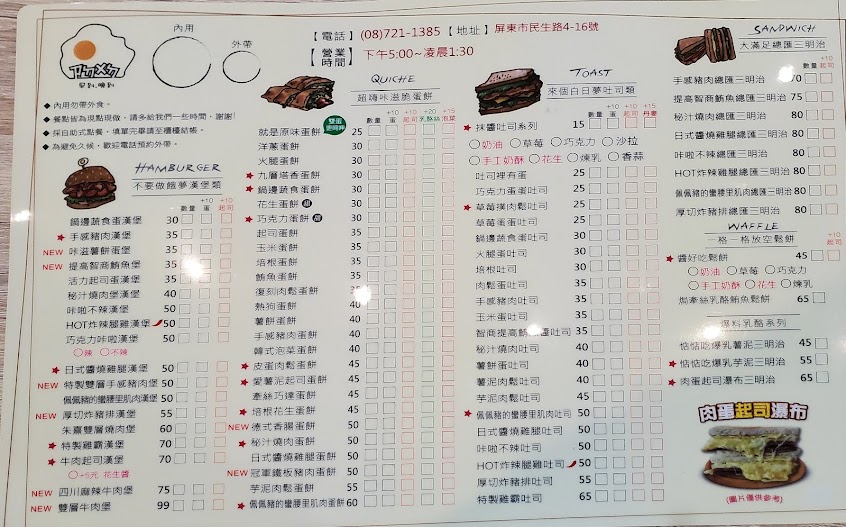 內用
外帶
早到.晚到
【電話】(08)721-1385【地址】屏東市民生路4-16號
【營業時間】下午5:00~凌晨1:30
◆內用勿帶外食。
◆餐點皆為現點現做，請多給我們一些時間，謝謝!
◆採自助式點餐，填單完畢請至櫃檯結帳。
◆為避免久候，歡迎電話預約外帶。
HAMBURGER
不要做餓夢漢堡類
數量 +10蛋 +10起司
鍋邊蔬食蛋漢堡 30
★手感豬肉漢堡 35
NEW 咔滋薯餅蛋堡 35
NEW ★提高智商鮪魚堡 35
活力起司蛋漢堡 35
秘汁燒肉蛋漢堡 40
咔啦不辣漢堡 50
HOT炸辣腿雞漢堡 50
巧克力咔啦漢堡 50
○辣 ○不辣
★日式醬燒雞腿漢堡 50
NEW 特製雙層手感豬肉堡 50
佩佩豬的彎腰里肌肉漢堡 50
NEW 厚切炸豬排漢堡 55
朱熹雙層燒肉堡 60
★特製雞霸漢堡 70
★牛肉起司漢堡 70
○+5元 花生醬
NEW 四川麻辣牛肉堡 75
NEW 雙層牛肉堡 99
QUICHE
超嗨咔滋脆蛋餅
數量 +10蛋 +10起司 +20乳酪絲 +15泡菜
就是原味蛋餅 25
洋蔥蛋餅 30
火腿蛋餅 30
★九層塔香蛋餅 30
★鍋邊蔬食蛋餅 30
花生蛋餅 甜 30
★巧克力蛋餅 甜 30
起司蛋餅 35
玉米蛋餅 35
培根蛋餅 35
鮪魚蛋餅 35
復刻肉鬆蛋餅 35
熱狗蛋餅 40
薯餅蛋餅 40
手感豬肉蛋餅 40
韓式泡菜蛋餅 40
★皮蛋肉鬆蛋餅 45
★愛薯泥起司蛋餅 45
牽絲巧達蛋餅 45
★培根花生蛋餅 45
NEW 德式香腸蛋餅 50
★秘汁燒肉蛋餅 50
日式醬燒雞腿蛋餅 50
NEW 冠軍鐵板豬肉蛋餅 50
芋泥肉鬆蛋餅 55
★佩佩豬的彎腰里肌肉蛋餅 60
TOAST
來個白日夢吐司類
數量 +10蛋 +10起司 +15丹麥
★抹醬吐司系列 15
○奶油 ○草莓 ○巧克力 ○沙拉
○手工奶酥 ○花生 ○煉乳 ○香蒜
吐司裡有蛋 25
巧克力蛋蛋吐司 25
★草莓摸肉鬆吐司 25
草莓蛋蛋吐司 25
鍋邊蔬食蛋吐司 30
火腿蛋吐司 30
培根吐司 30
肉鬆蛋吐司 35
手感豬肉吐司 35
玉米蛋吐司 35
智商提高鮪魚 吐司 35
秘汁燒肉吐司 40
薯餅蛋吐司 40
薯泥肉鬆吐司 40
芋泥肉鬆吐司 45
★佩佩豬的彎腰里肌肉吐司 50
日式醬燒雞腿吐司 50
咔啦不辣吐司 50
HOT炸辣腿雞吐司 50
厚切炸豬排吐司 55
特製雞霸吐司 65
SANDWICH
大滿足總匯三明治
數量 +10起司
手感豬肉總匯三明治 70
提高智商鮪魚總匯三明治 75
秘汁燒肉總匯三明治 80
日式醬燒雞腿總匯三明治 80
咔啦不辣總匯三明治 80
HOT炸辣腿雞總匯三明治 80
佩佩豬的彎腰里肌肉總匯三明治 80
厚切炸豬排總匯三明治 80
WAFFLE
一格一格放空鬆餅
+10起司
★醬好吃鬆餅 45
○奶油 ○草莓 ○巧克力
○手工奶酥 ○花生 ○煉乳
焗牽絲乳酪鮪魚鬆餅 65
爆料乳酪系列
惦惦吃爆乳薯泥三明治 45
★惦惦吃爆乳芋泥三明治 55
★肉蛋起司瀑布三明治 65
肉蛋起司瀑布
(圖片僅供參考)